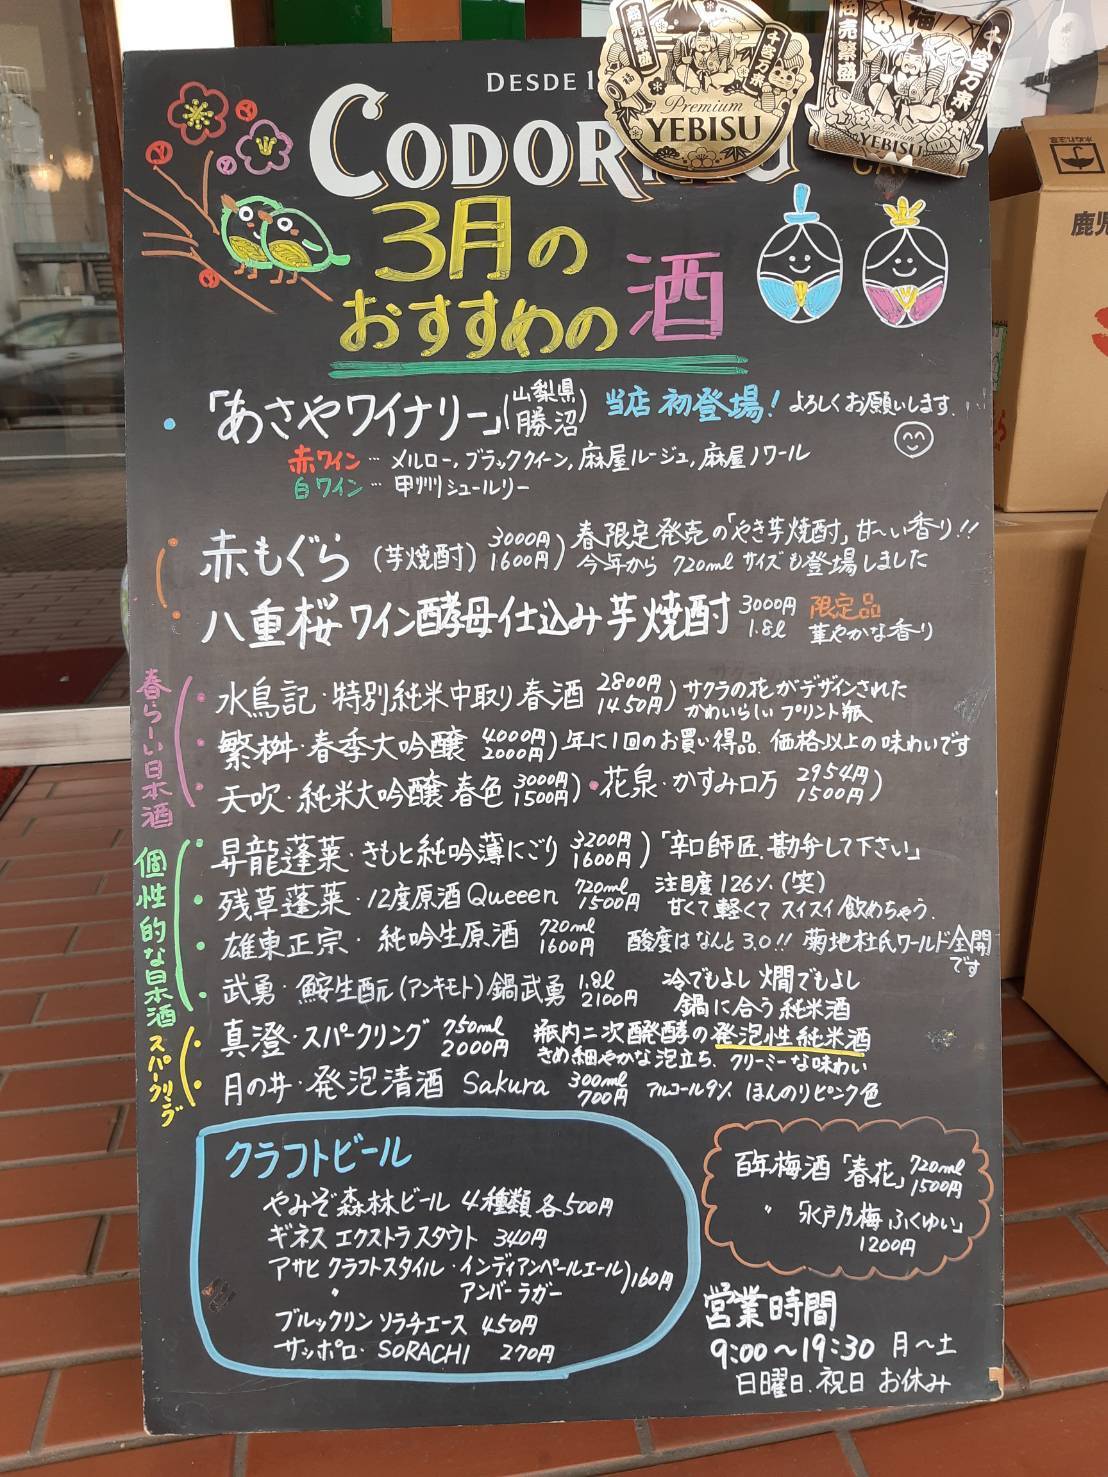 DESDE 1
CODOR
商売繁盛
千客万来
Premium
YEBISU
商売繁盛
福
千客万来
Premium
YEBISU
3月の
おすすめの酒
・「あさやワイナリー」(山梨県勝沼) 当店初登場! よろしくお願いします.
赤ワイン … メルロー, ブラッククイーン, 麻屋ルージュ, 麻屋ノワール
白ワイン … 甲州シュールリー
・赤もぐら (芋焼酎) 3000円 1600円) 春限定発売の「やき芋焼酎」甘〜い香り!!
今年から 720mlサイズも登場しました
・八重桜ワイン酵母仕込み芋焼酎 3000円 1.8l 限定品
華やかな香り
春らーい日本酒
・水鳥記・特別純米中取り春酒 2800円 1450円) サクラの花がデザインされた
かわいらしいプリント瓶
・繁桝・春季大吟醸 4000円 2000円) 年に1回のお買い得品. 価格以上の味わいです
・天吹・純米大吟醸春色 3000円 1500円) ・花泉・かすみロ万 2954円 1500円)
個性的な日本酒
・昇龍蓬莱・きもと純吟薄にごり 3200円 1600円) 「辛口師匠. 勘弁して下さい」
・残草蓬莱・12度原酒Queeen 720ml 1500円 注目度126%(笑)
甘くて軽くてスイスイ飲めちゃう.
・雄東正宗・純吟生原酒 720ml 1600円 酸度はなんと3.0!! 菊地杜氏ワールド全開
です
・武勇・鮟生酛(アンキモト)鍋武勇 1.8l 2100円 冷でもよし燗でもよし
鍋に合う純米酒
スパークリング
・真澄・スパークリング 750ml 2000円 瓶内二次醗酵の発泡性純米酒
きめ細やかな泡立ち. クリーミーな味わい
・月の井・発泡清酒 Sakura 300ml 700円 アルコール9% ほんのりピンク色
クラフトビール
やみぞ森林ビール 4種類各500円
ギネスエクストラスタウト 340円
アサヒクラフトスタイル・インディアンペールエール
〃 アンバーラガー )160円
ブルックリンソラチエース 450円
サッポロ・SORACHI 270円
百年梅酒「春花」720ml 1500円
〃 「水戸乃梅ふくゆい」
1200円
営業時間
9:00〜19:30 月〜土
日曜日.祝日 お休み
鹿児